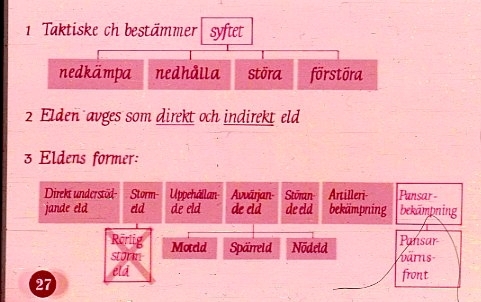 1 Taktiske ch bestämmer syftet
nedkämpa nedhålla störa förstöra
2 Elden avges som direkt och indirekt eld
3 Eldens former:
Direkt understöd-
jande eld
Storm-
eld
Uppehållan-
de eld
Avvärjan-
de eld
Störan-
de eld
Artilleri-
bekämpning
Pansar-
bekämpning
Rörlig
storm-
eld
Moteld Spärreld Nödeld
Pansar-
värns-
front
27